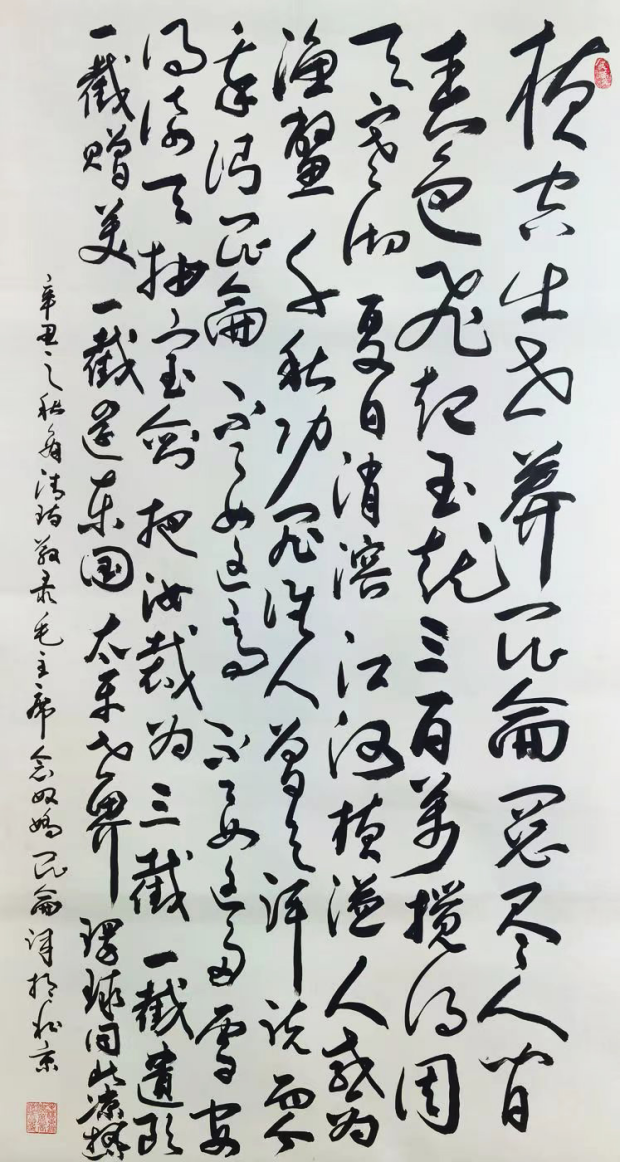 横空出世莽昆侖阅尽人间
春色飞起玉龙三百萬搅得周
天寒彻夏日消溶江河横溢人或为
渔鳖千秋功罪谁人曾与评说而今
我谓昆侖不要这高不要这多雪安
得倚天抽宝剑把汝裁为三截一截遗欧
一截赠美一截还东国太平世界环球同此凉热
辛丑之秋敬录毛主席念奴娇昆侖词于北京